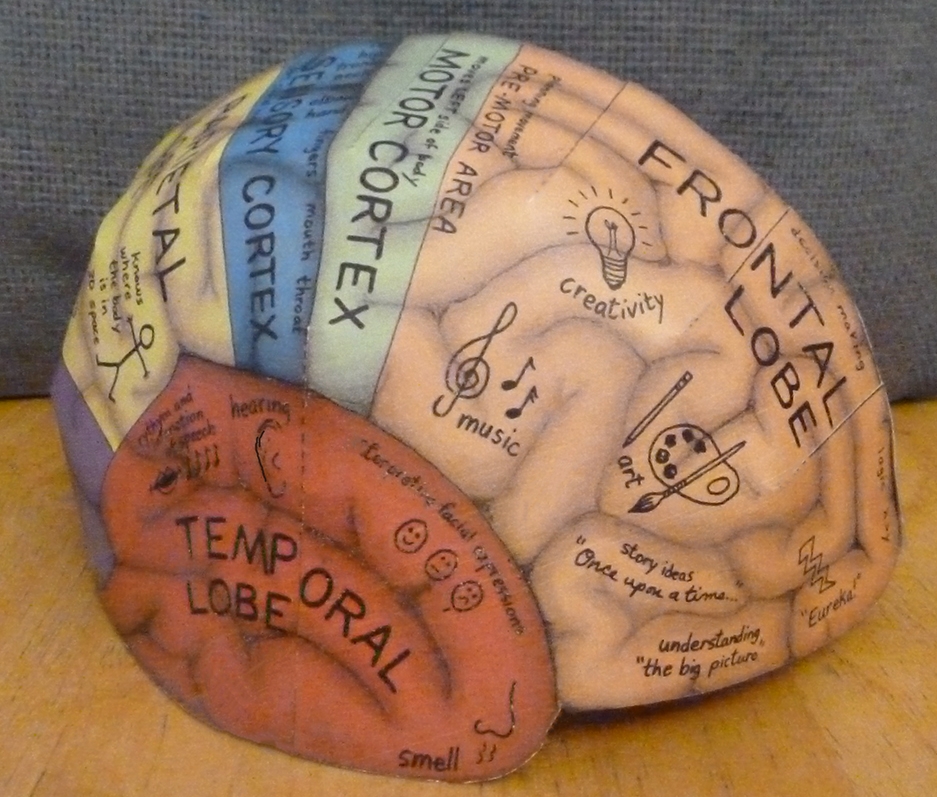 PARIETAL
knows
where
the body
is in
3D space
SENSORY CORTEX
fingers mouth throat
MOTOR CORTEX
moves LEFT side of body
PRE-MOTOR AREA
planning movement
FRONTAL
LOBE
decision making
logic
creativity
music
art
story ideas
"Once upon a time..."
understanding
"the big picture
"Eureka!"
rhythm and
emotion
of speech
hearing
Interpreting facial expressions
TEMPORAL
LOBE
smell